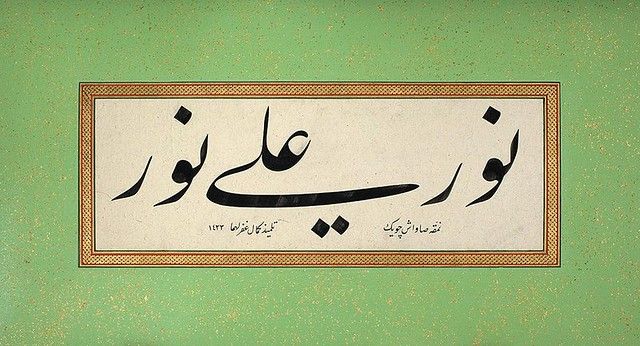 نور علي نور
نمقه صاواش چويك تلميذ كمال غفر لهما